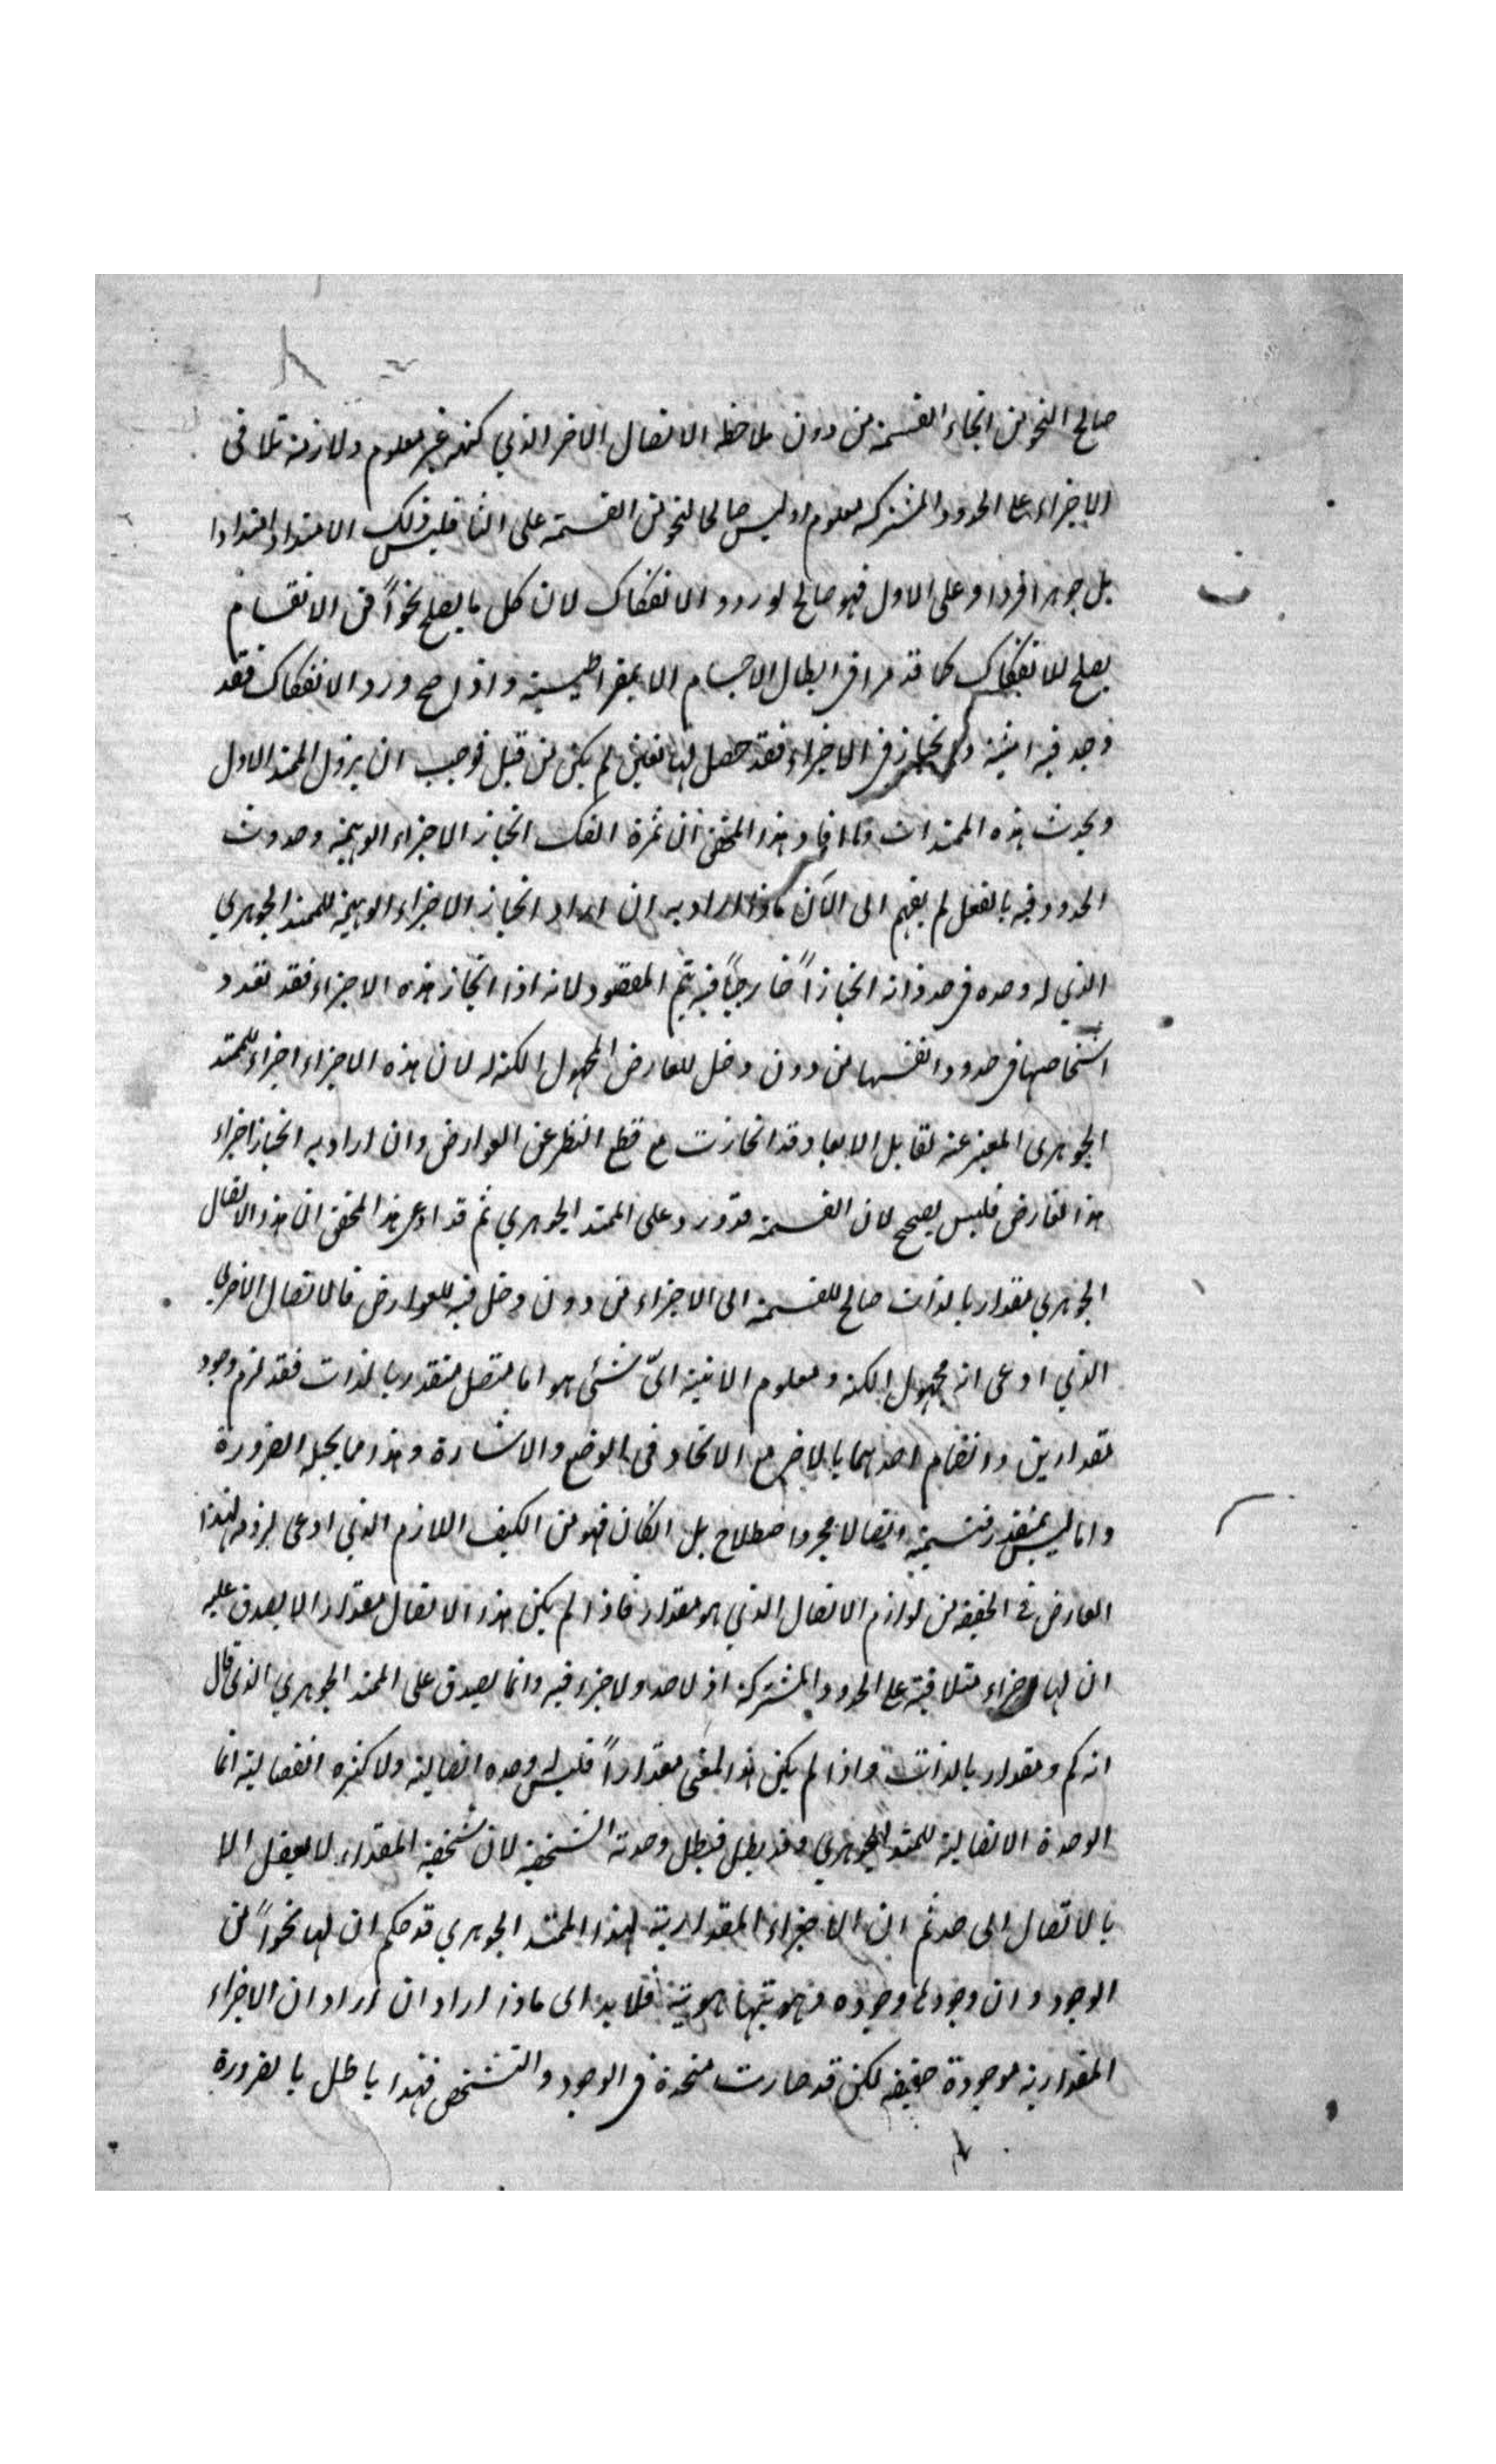 صالح النحو من انحاء القسمة من دون ملاحظة الاتصال الاخر الذي كنهه غير معلوم ولازمه تلاقى
الاجزاء على الحدود المشتركة معلوم او ليس صالحا لنحو من القسمة على الثا فليس ذلك الامتداد امتدادا
بل جوهرا فردا وعلى الاول فهو صالح لورود الانفكاك لان كل ما يصلح نحواً من الانقسام
يصلح للانفكاك كما قد مر في ابطال الاجسام الديمقراطيسية واذا صح ورود الانفكاك فقد
وجد فيه اثنينة وانحياز في الاجزاء فقد حصل لها تعين لم يكن من قبل فوجب ان يزول الممتد الاول
ويحدث هذه الممتدات وما افاد هذا المحقق ان ثمرة الفك انحياز الاجزاء الوهمية وحدوث
الحدود فيه بالفعل لم يفهم الى الآن ماذا اراد به ان اراد انحياز الاجزاء الوهمية للممتد الجوهري
الذي له وحده في حد ذاته انحيازاً خارجياً فيه يتم المقصود لانه اذا انحاز هذه الاجزاء فقد تعدد
اشخاصها في حدود انفسها من دون دخل للعارض المجهول الكنه لان هذه الاجزاء اجزاء للممتد
الجوهرى المعبر عنه لقابل الابعاد وقد انحازت مع قطع النظر عن العوارض وان اراد به انحياز اجزاء
هذا العارض فليس يصح لان القسمة قد ورد على الممتد الجوهري ثم قد ادعى هذا المحقق ان هذا الاتصال
الجوهري مقدار بالذات صالح للقسمة الى الاجزاء من دون دخل فيه للعوارض فالاتصال الاخر
الذي ادعى انه مجهول الكنه ومعلوم الانية اىّ شئى هو اما متصل متقدر بالذات فقد لزم وجود
مقدارين وانضمام احدهما بالاخر مع الاتحاد فى الوضع والاشارة وهذا مما يحيله الضرورة
واما ليس بمتقدر فتسميته اتصالا مجرد اصطلاح بل انكان فهو من الكيف اللازم الذي ادعى لزومه لهذا
العارض فى الحقيقة من لوازم الاتصال الذي هو مقدار فاذا لم يكن هذا الاتصال مقدارا لا يصدق عليه
ان لها اجزاء متلاقية على الحدود المشتركة اذ لا حد ولا جزء فيه وانما يصدق على الممتد الجوهري الذى قال
انه كم ومقدار بالذات واذا لم يكن هذا المعنى مقداراً فليس له وحده اتصالية ولا كثرة انفصالية انما
الوحدة الاتصالية للممتد الجوهري وقد بطل فبطل وحدته الشخصية لان شخصية المقدار لا يعقل الا
بالاتصال الى حد ثم ان الاجزاء المقدارية لهذا الممتد الجوهري قد حكم ان لها نحواً من
الوجود وان وجودها وجوده وهويتها هويته فلا بد الى ماذا اراد ان اراد ان الاجزاء
المقدارية موجودة حقيقة لكن قد صارت متحدة فى الوجود والتشخص فهذا باطل بالضرورة